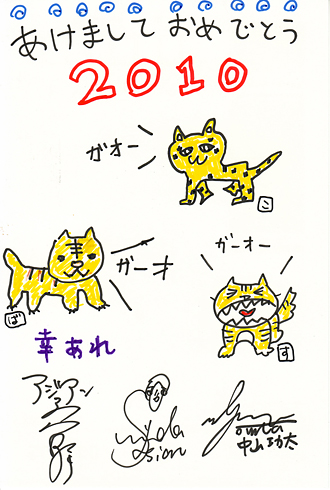 あけまして おめでとう
2010
ガオー
こ
ガーオ
ガーオー
ば
す
幸あれ
アジアン
asian
中山功太